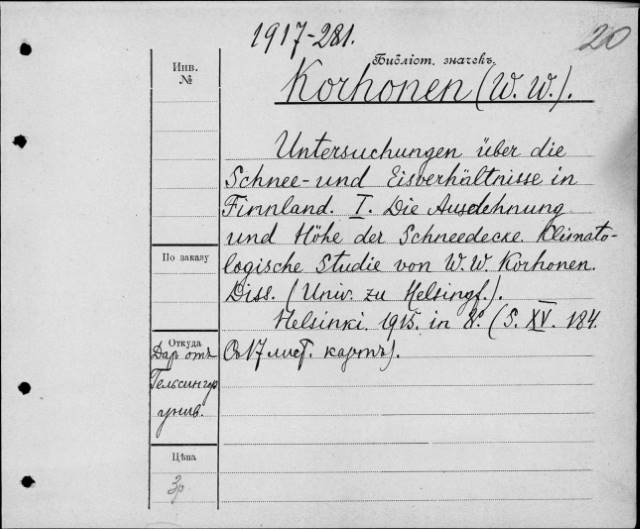 1917-281.
20
Библіот. значекъ.
Инв.
№
Korhonen (W. W.).
Untersuchungen über die
Schnee- und Eisverhältnisse in
Finnland. I. Die Ausdehnung
und Höhe der Schneedecke. Klimato-
logische Studie von W. W. Korhonen.
Diss. (Univ. zu Helsingf.).
Helsinki, 1915. in 8º. (S. XV. 184.
Съ 17 лист. картъ).
По заказу
Откуда
Даръ отъ
Гельсингф
унив.
Цѣна
3р